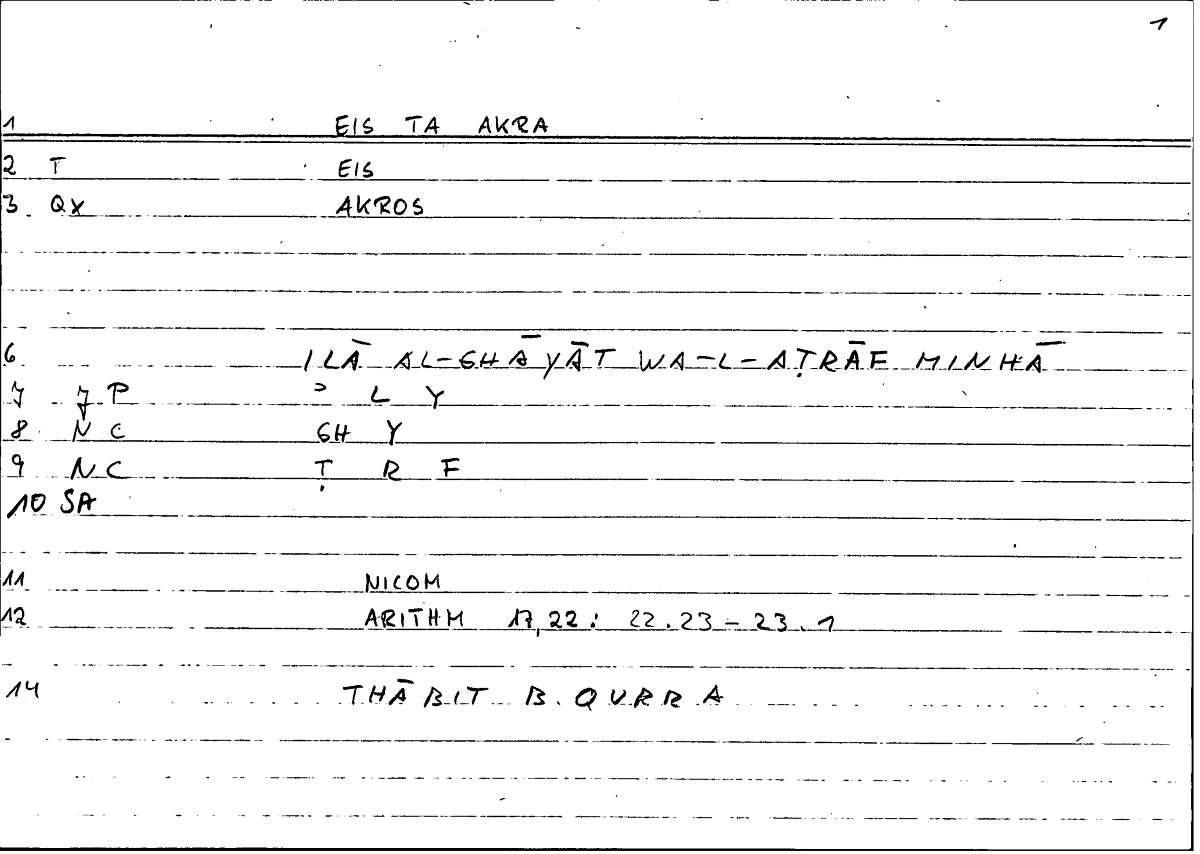 1
1 EIS TA AKRA
2 T EIS
3 QX AKROS
6 ILĀ AL-GHĀYĀT WA-L-AṬRĀF MINHĀ
7 7P ʾ L Y
8 NC GH Y
9 NC Ṭ R F
10 SA
11 NICOM
12 ARITHM 17,22: 22.23-23.1
14 THĀBIT B. QURRA